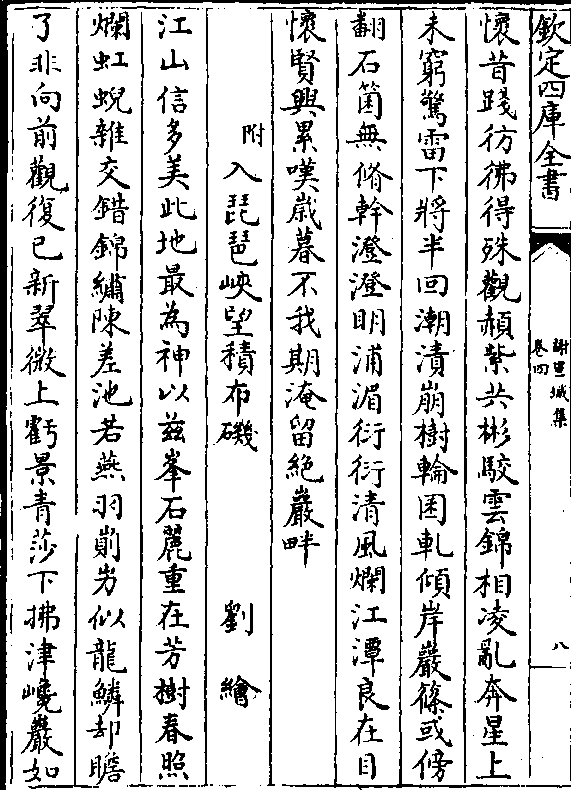 欽定四庫全書
謝宣城集
卷四
八
懷昔踐彷彿得殊觀赬紫共彬駮雲錦相凌亂奔星上
未窮驚雷下將半回潮漬崩樹輪囷軋傾岸巖篠或傍
翻石箘無脩幹澄澄明浦湄衍衍清風爛江潭良在目
懷賢興累嘆歲暮不我期淹留絶巖畔
附入琵琶峽望積布磯 劉繪
江山信多美此地最為神以兹峯石麗重在芳樹春照
爛虹蜺雜交錯錦繡陳差池若燕羽崱屴似龍鱗却瞻
了非向前觀復已新翠微上虧景青莎下拂津巉巖如